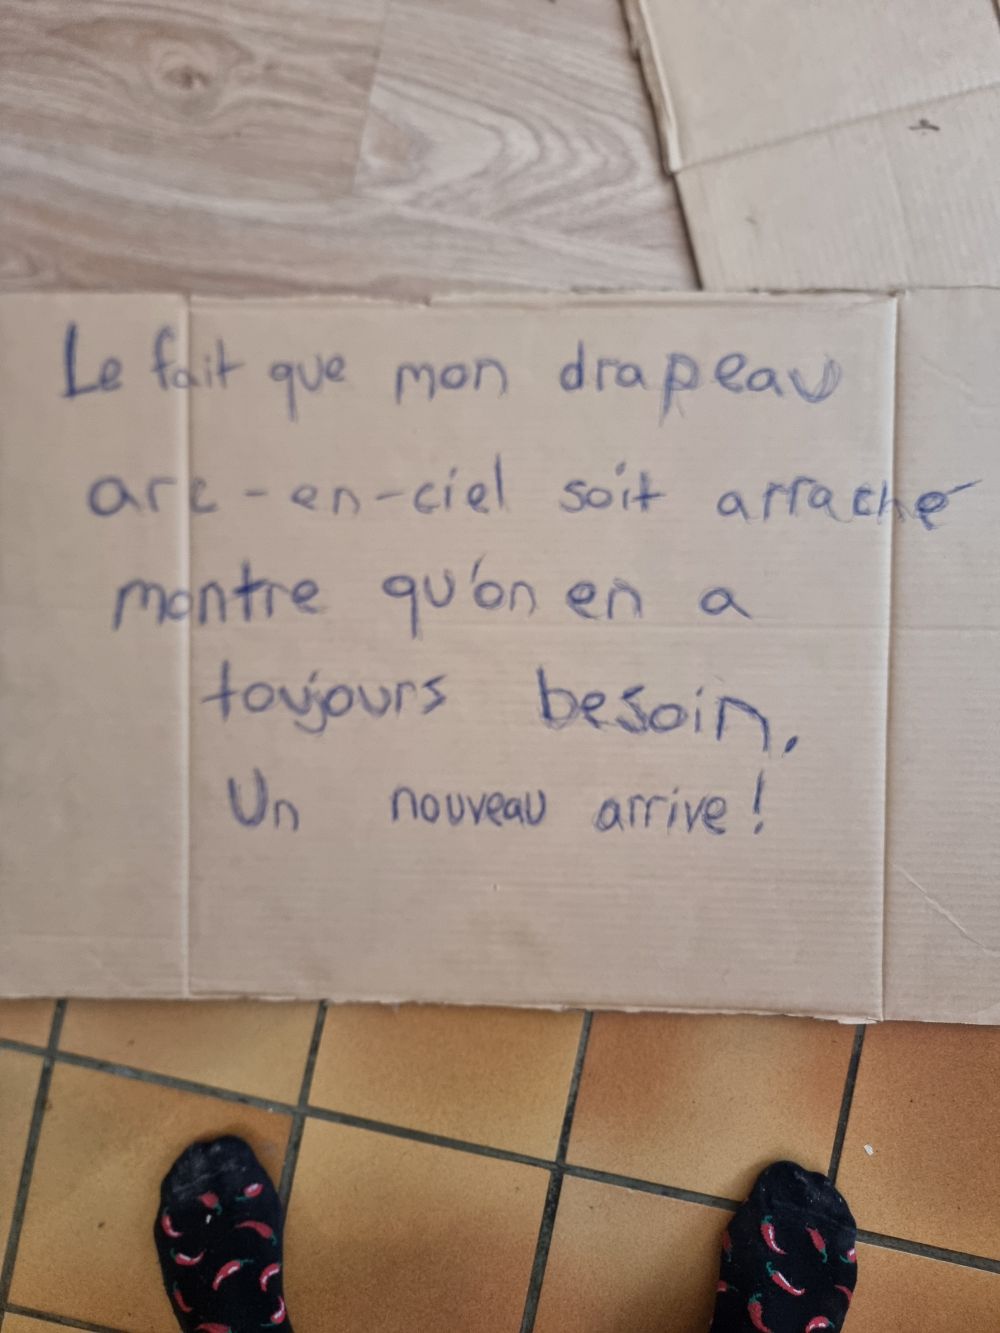 Le fait que mon drapeau
arc-en-ciel soit arraché
montre qu'on en a
toujours besoin.
Un nouveau arrive!